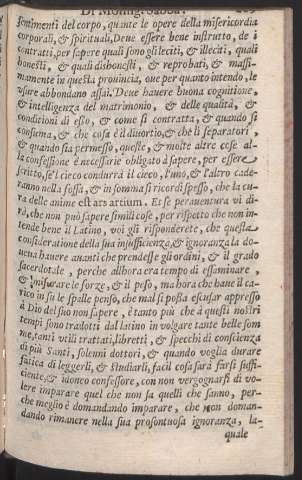 Di Monsig. Sabba.
sentimenti del corpo, quante le opere della misericordia
corporali, & spirituali, Deue essere bene instrutto, de i
contratti, per sapere quali sono gli leciti, & illeciti, quali
honesti, & quali dishonesti, & reprobati, & massi-
mamente in questa prouincia, oue per quanto intendo, le
vsure abbondano assai. Deue hauere buona cognitione,
& intelligenza del matrimonio, & delle qualità, &
conditioni di esso, & come si contratta, & quando si
consuma, & che cosa è il diuortio, & che li separatori,
& quando sia permesso, queste, & molte altre cose al-
la confessione è necessario obligato à sapere, per essere
scritto, se'l cieco condurrà il cieco, l'uno, & l'altro cade-
ranno nella fossa, & in somma si ricordi spesso, che la cu-
ra delle anime est ars artium. Et se perauentura vi di-
rà, che non può sapere simili cose, per rispetto che non in-
tende bene il Latino, voi gli risponderete, che questa
consideratione della sua insufficienza, & ignoranza la do-
ueua hauere auanti che prendesse gli ordini, & il grado
sacerdotale, perche allhora era tempo di essaminare,
& misurare le forze, & il peso, ma hora che haue il ca-
rico in su le spalle penso, che mal si possa escusar appresso
à Dio del suo non sapere, è tanto più che à questi nostri
tempi sono tradotti dal latino in volgare tante belle som
me, tanti vtili trattati, libretti, & specchi di conscienza
di più Santi, solenni dottori, & quando voglia durare
fatica di leggerli, & studiarli, facil cosa sarà farsi suffi-
ciente, & idoneo confessore, con non vergognarsi di vo-
lere imparare quel che non sa quelli che sanno, per-
che meglio è domandando imparare, che non doman-
dando rimanere nella sua prosontuosa ignoranza, la-
quale